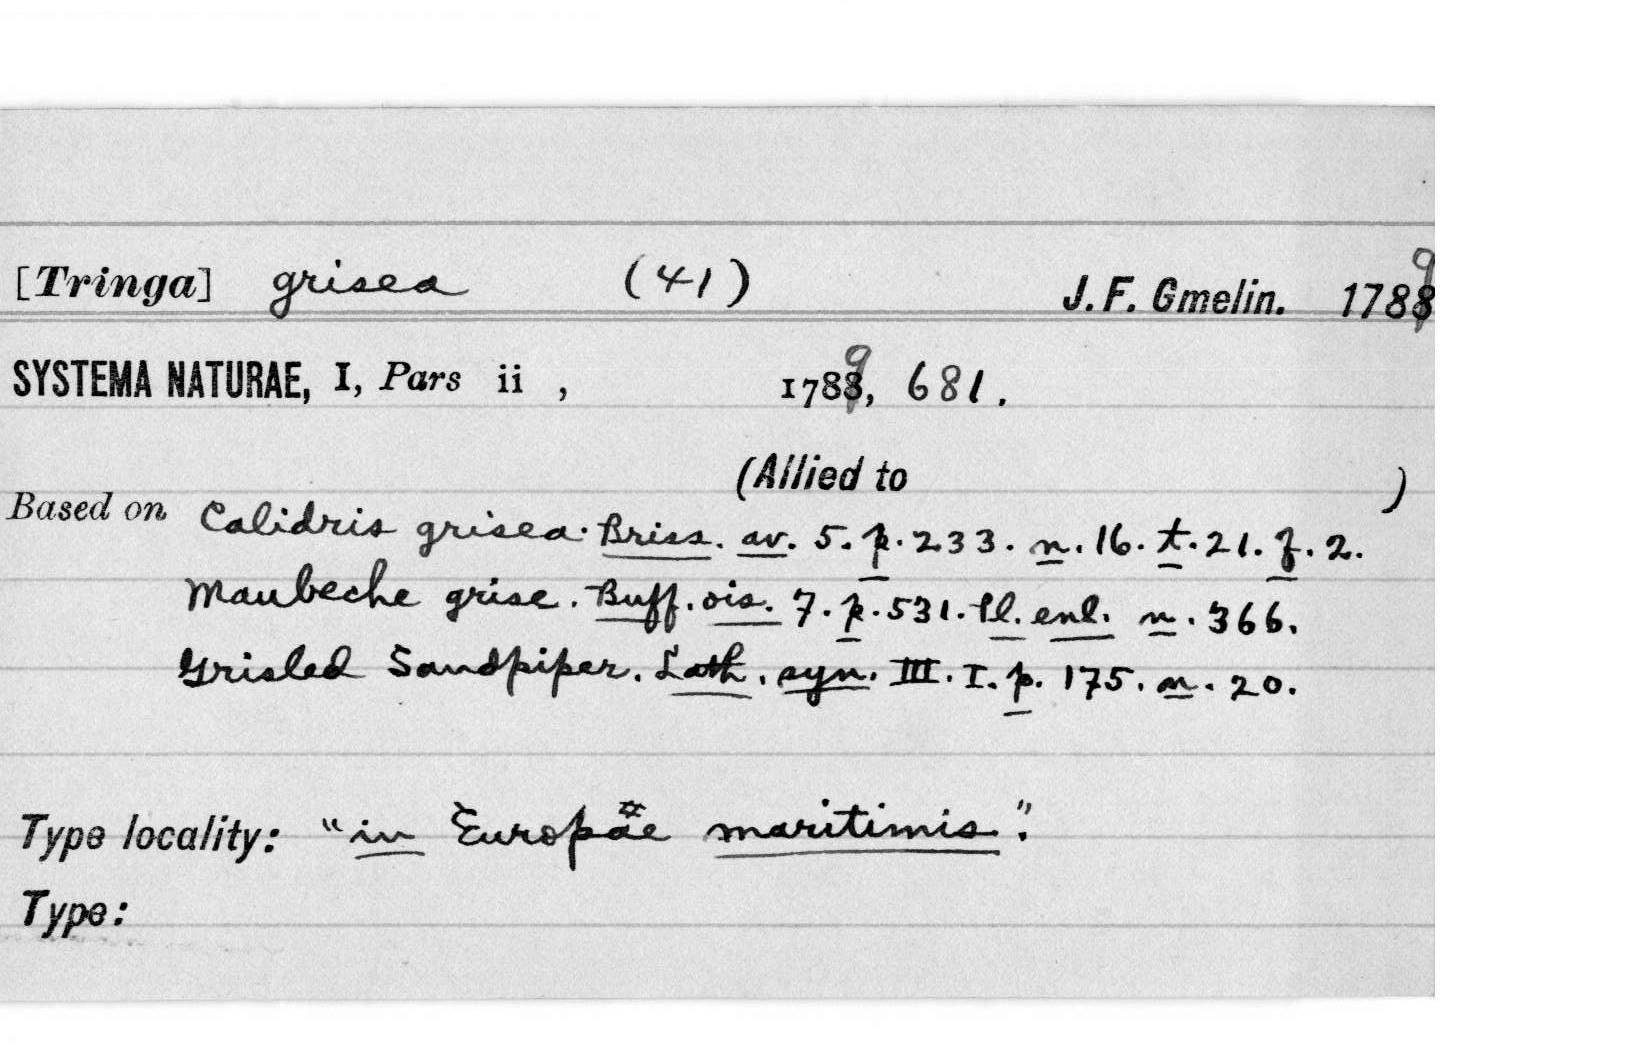 [Tringa] grisea (41) J. F. Gmelin. 1789
SYSTEMA NATURAE, I, Pars ii , 1789, 681.
(Allied to )
Based on Calidris grisea. Briss. av. 5. p. 233. n. 16. t. 21. f. 2.
Maubeche grise. Buff. ois. 7. p. 531. Pl. enl. n. 366.
Grisled Sandpiper. Lath. syn. III. I. p. 175. n. 20.
Type locality: "in Europae maritimis".
Type: